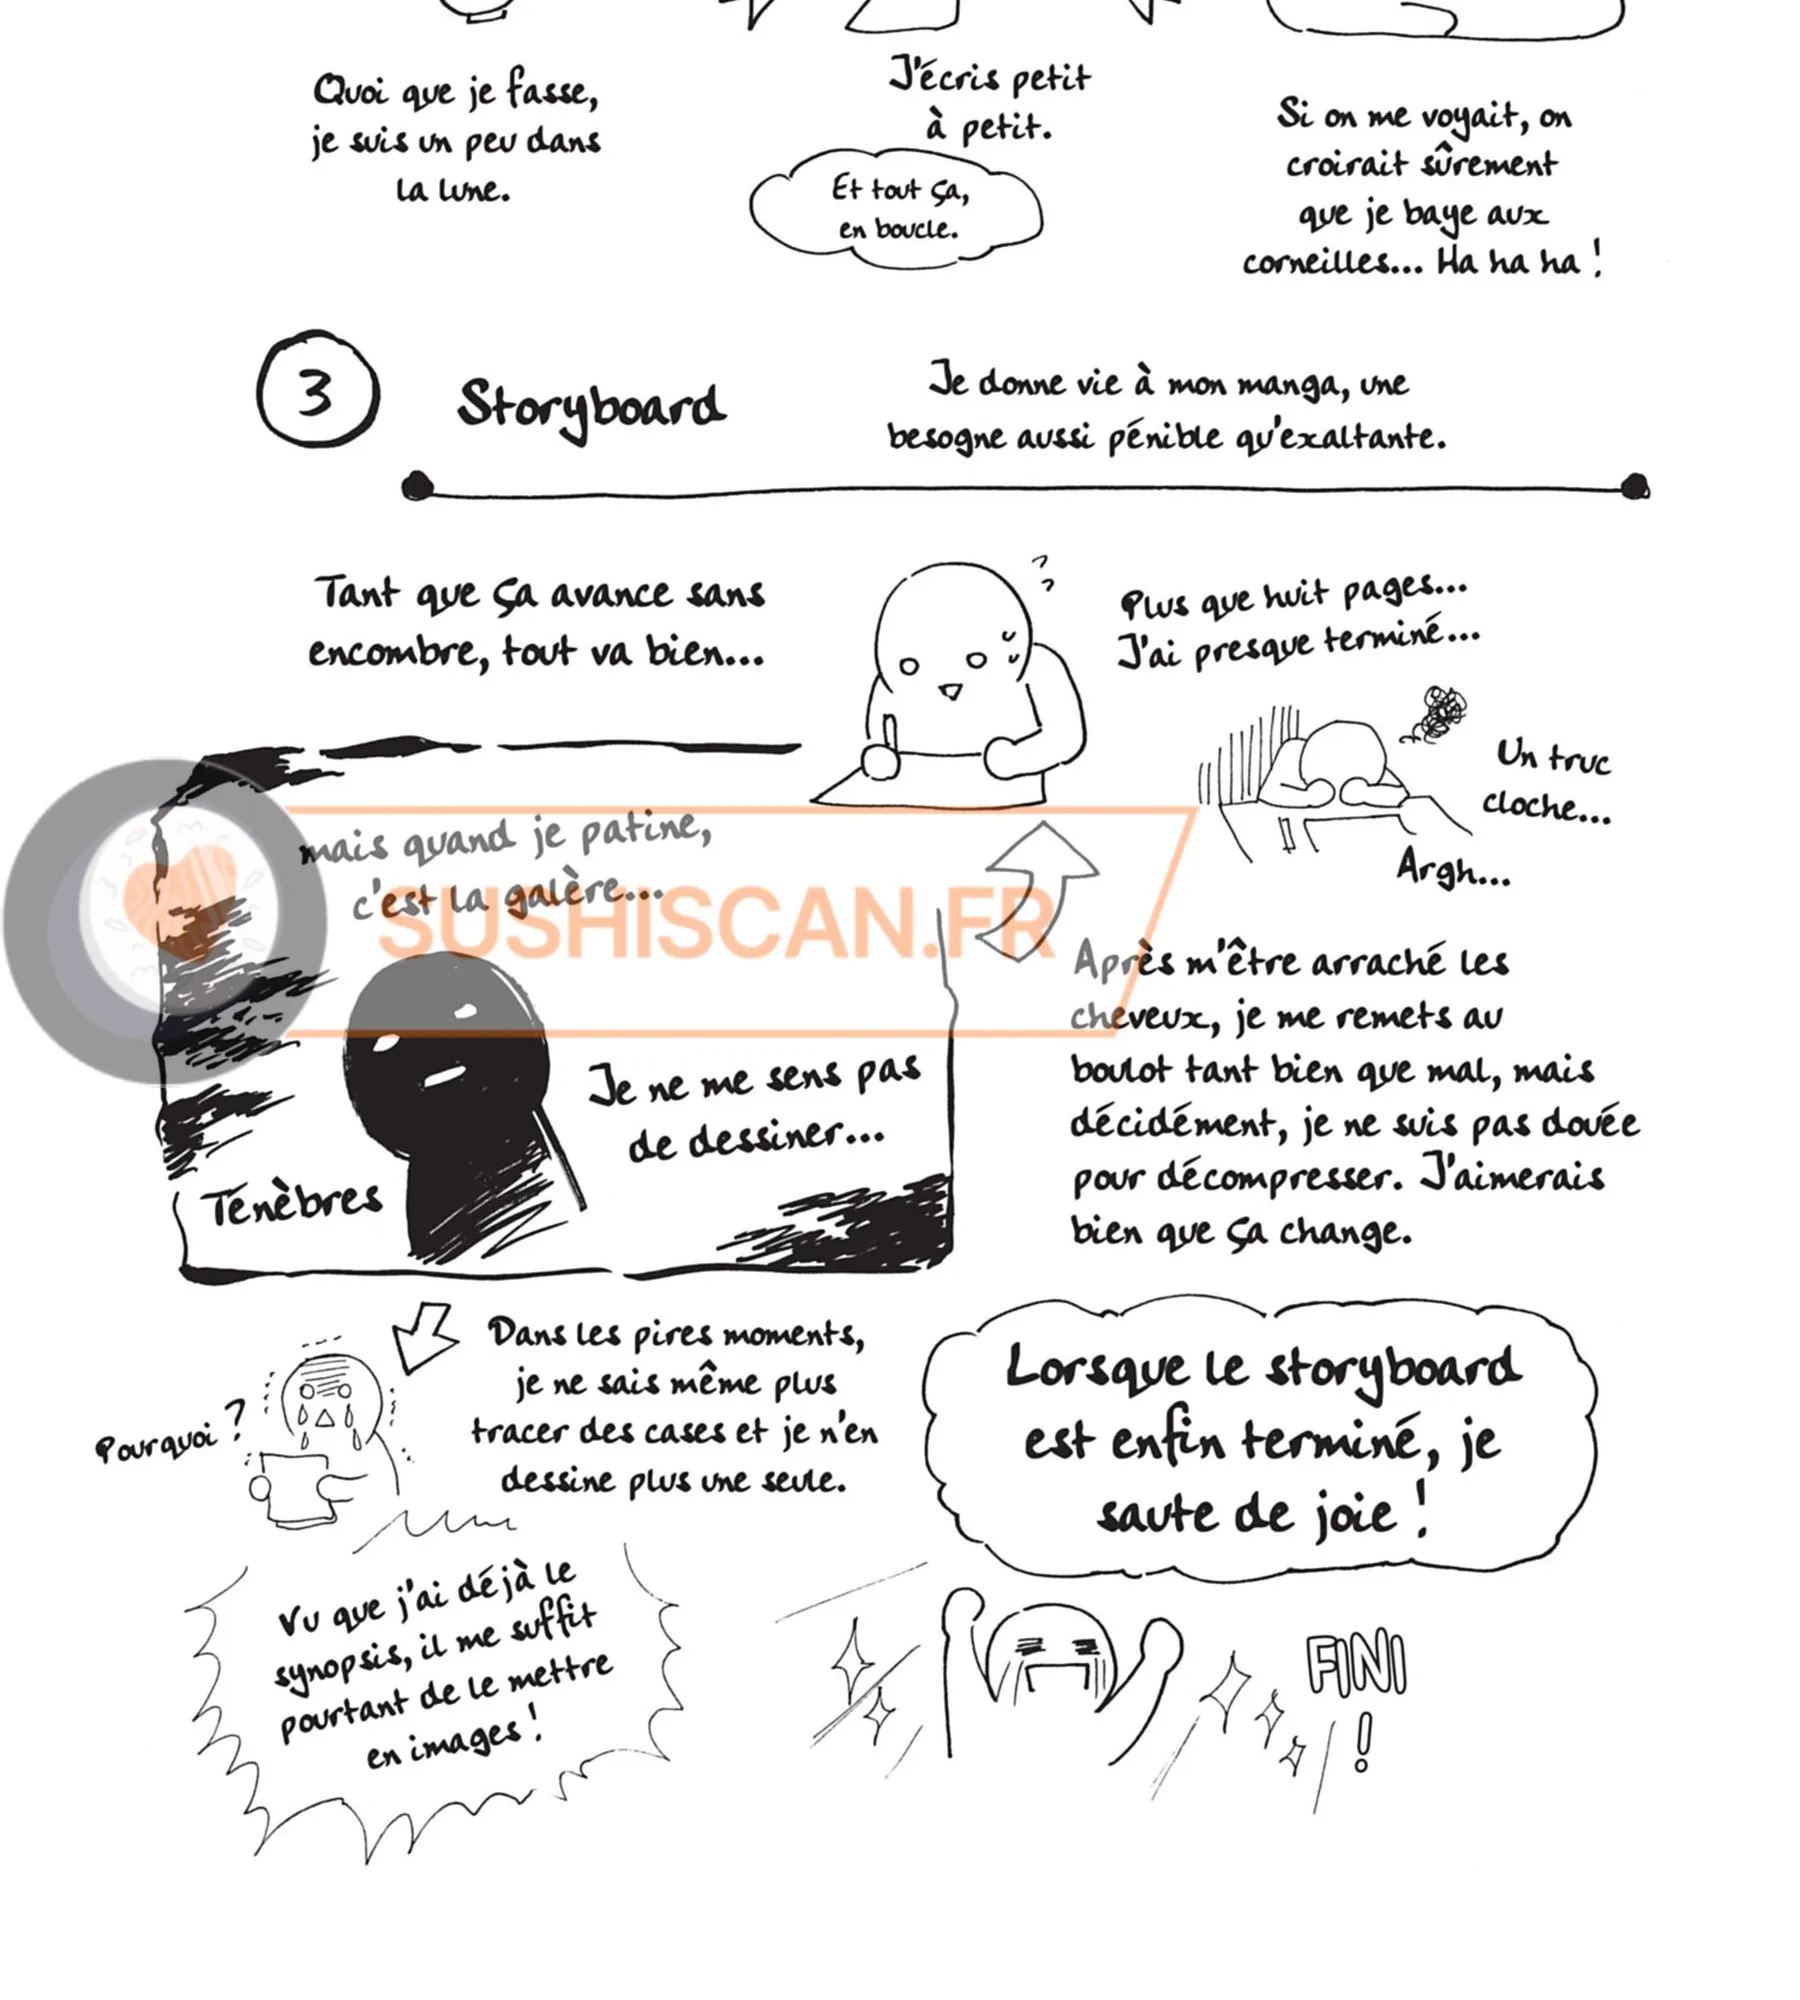 Quoi que je fasse,
je suis un peu dans
la lune.
J'écris petit
à petit.
Et tout ça,
en boucle.
Si on me voyait, on
croirait sûrement
que je baye aux
corneilles... Ha ha ha !
3
Storyboard
Je donne vie à mon manga, une
besogne aussi pénible qu'exaltante.
Tant que ça avance sans
encombre, tout va bien...
Plus que huit pages...
J'ai presque terminé...
Un truc
cloche...
Argh...
mais quand je patine,
c'est la galère...
SUSHISCAN.FR
Je ne me sens pas
de dessiner...
Ténèbres
Après m'être arraché les
cheveux, je me remets au
boulot tant bien que mal, mais
décidément, je ne suis pas douée
pour décompresser. J'aimerais
bien que ça change.
Dans les pires moments,
je ne sais même plus
tracer des cases et je n'en
dessine plus une seule.
Pourquoi ?
Vu que j'ai déjà le
synopsis, il me suffit
pourtant de le mettre
en images !
Lorsque le storyboard
est enfin terminé, je
saute de joie !
FINI
!